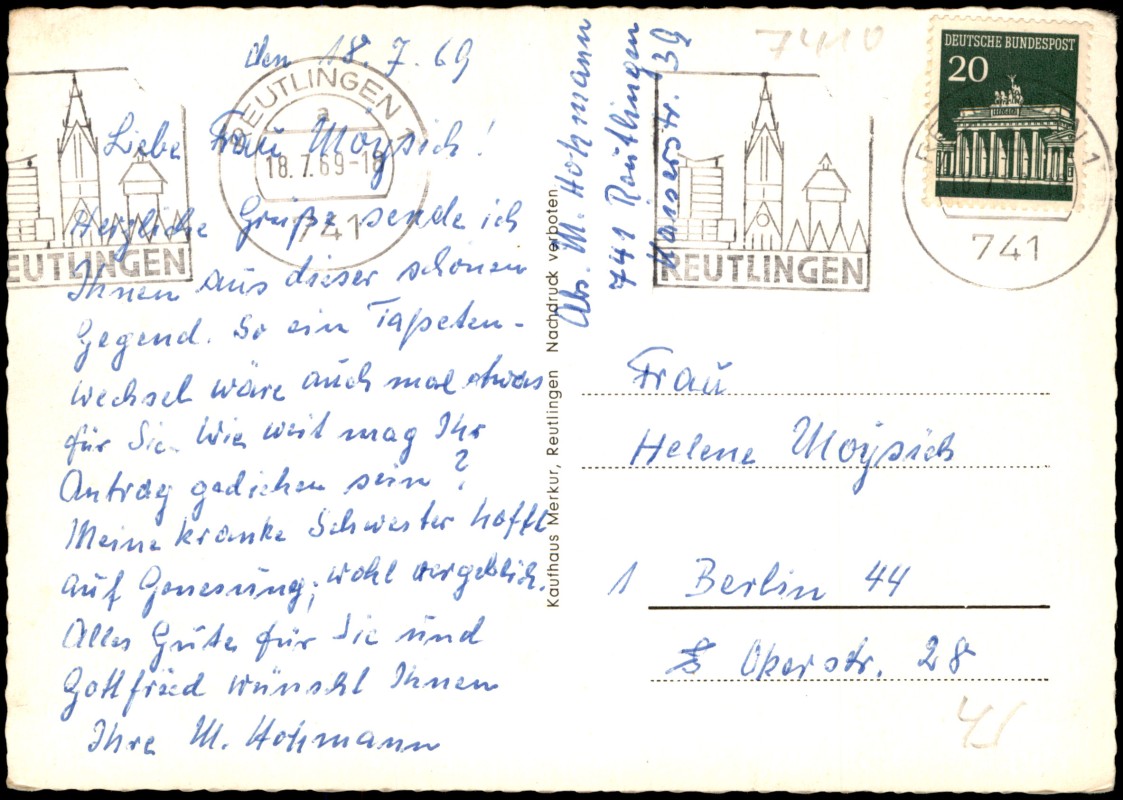 den 18.7.69
Liebe Frau Moysich!
Herzliche Grüße sende ich
Ihnen aus dieser schönen
Gegend. So ein Tapeten-
wechsel wäre auch mal etwas
für Sie. Wie weit mag Ihr
Antrag gediehen sein?
Meine kranke Schwester hofft
auf Genesung, wohl vergeblich.
Alles Gute für Sie und
Gottfried wünscht Ihnen
Ihre M. Hohmann
REUTLINGEN 1
a
18.7.69-18
741
REUTLINGEN
Kaufhaus Merkur, Reutlingen Nachdruck verboten
Abs. M. Hohmann
741 Reutlingen
Kaiserstr. 39
7410
REUTLINGEN
DEUTSCHE BUNDESPOST
20
741
Frau
Helene Moysich
1 Berlin 44
Okerstr. 28
45